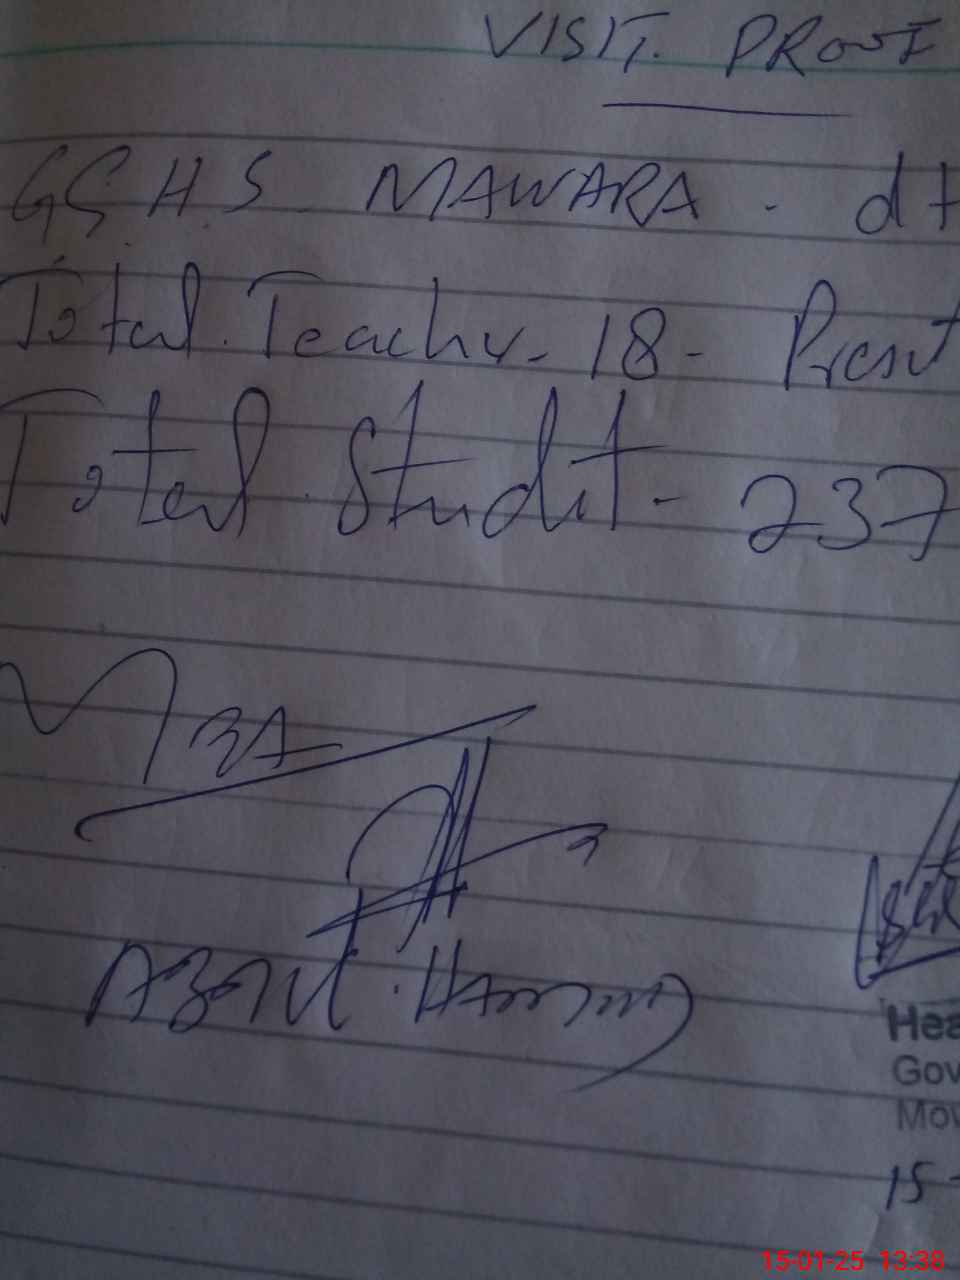 VISIT. PROOF
G.G.H.S MAWARA - dt
Total Teacher - 18 - Present
Total Studet - 237
Hea
Gov
Mov
15-
15-01-25 13:38